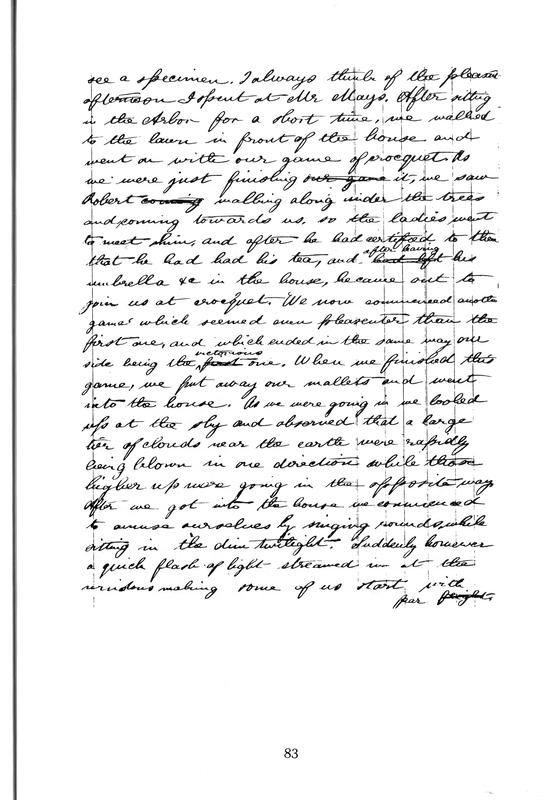 see a specimen. I always think of the pleasant
afternoon I spent at Mr Mays. After sitting
in the Arbor for a short time, we walked
to the lawn in front of the house and
went on with our game of crocquet. As
we were just finishing our game it, we saw
Robert coming walking along under the trees
and coming towards us, so the ladies went
to meet him, and after he had certified to them
that he had had his tea, and after leaving had left his
umbrella &c in the house, he came out to
join us at crocquet. We now commenced another
game which seemed even pleasenter than the
first one, and which ended in the same way our
side being the victorious first one. When we finished this
game, we put away our mallets and went
into the house. As we were going in we looked
up at the sky and observed that a large
tier of clouds near the earth were rapidly
being blown in one direction while those
higher up were going in the opposite way
After we got into the house we commenced
to amuse ourselves by singing rounds, while
sitting in the dim twilight. Suddenly however
a quick flash of light streamed in at the
windows making some of us start with
fear fright.
83